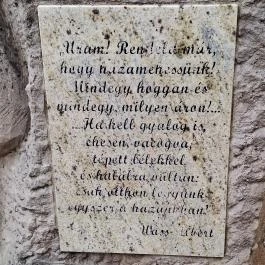 „Uram! Rendeld már,
hogy hazamehessünk!
Mindegy, hoggan és
mindegy, milyen áron!...
...Ha kell gyalog is,
éhesen, vacogva,
tépett bélékkel
és hóbálra váltan:
csak otthon legyünk
egyszer, a hazánkban!"
Wass Albert